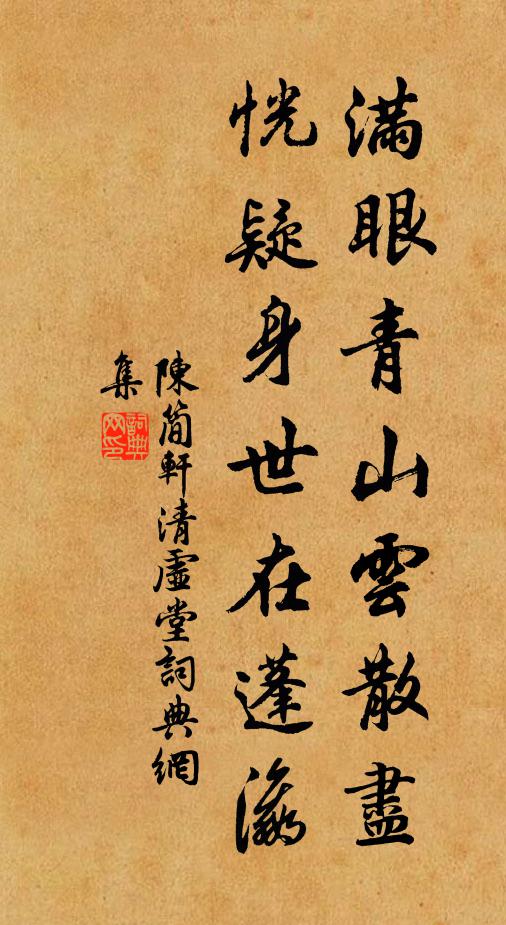 滿眼青山雲散盡
恍疑身世在蓬瀛
陳簡軒清虛堂詞典網
集
詞典網印